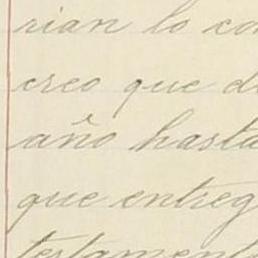 rian lo co
creo que d
año hasta
que entreg
testament